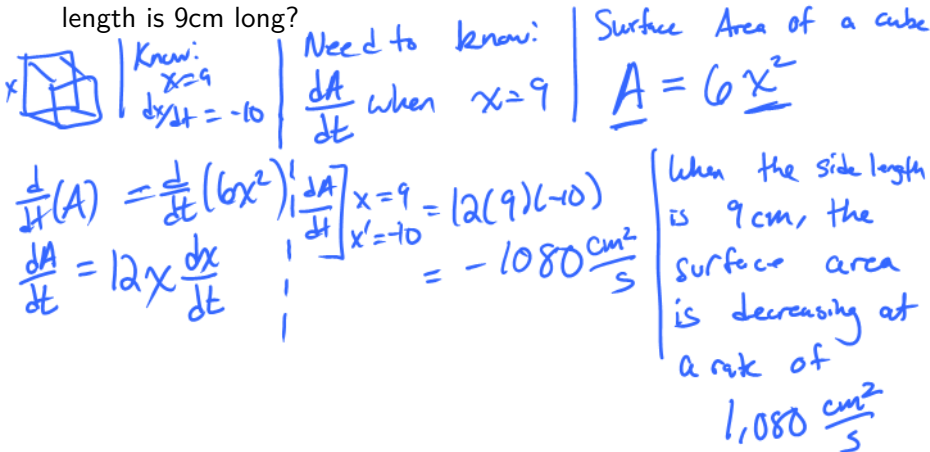 length is 9cm long?
x
Know:
x=9
dx/dt = -10
Need to know:
dA/dt when x=9
Surface Area of a cube
A = 6x²
d/dt(A) = d/dt(6x²)
dA/dt = 12x dx/dt
dA/dt] x=9 x'=-10 = 12(9)(-10)
= -1080 cm²/s
When the side length
is 9cm, the
surface area
is decreasing at
a rate of
1,080 cm²/s